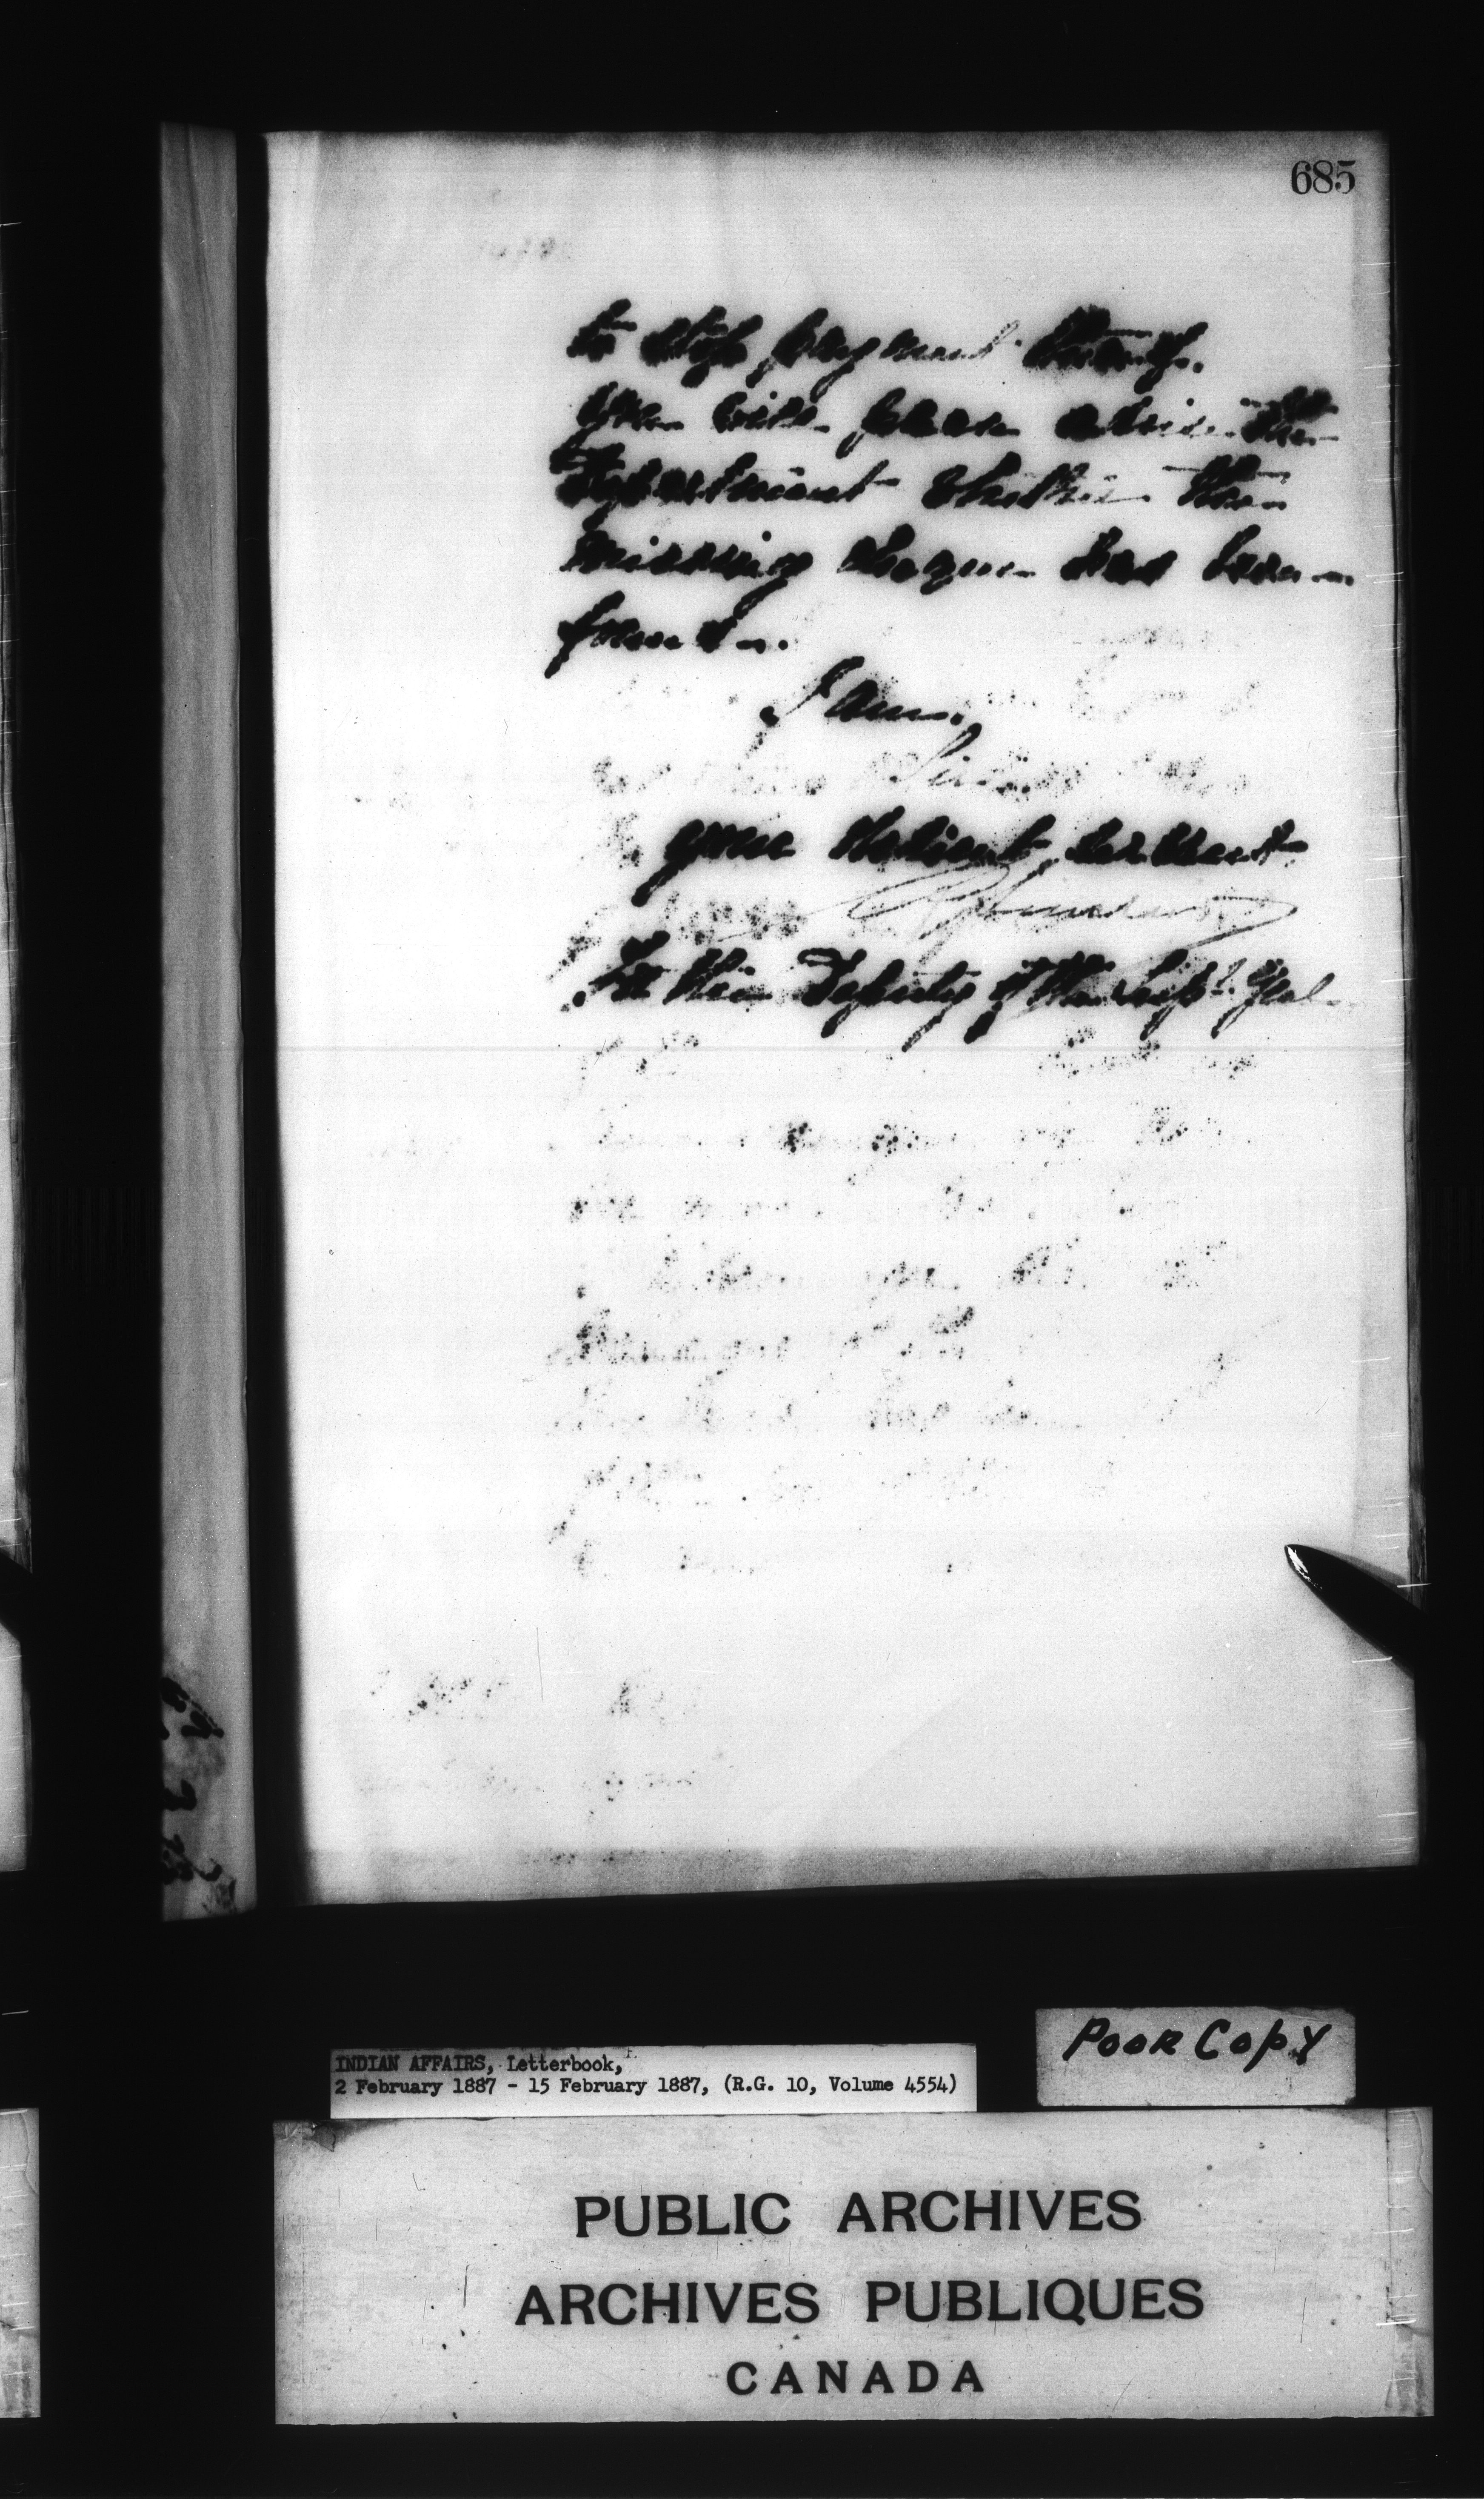 685
to stop payment thereof.
You will please advise the
Department whether the
missing cheque has been
found.
I am,
Sir,
your obedient servant
for the Deputy of the Supt. Genl.
INDIAN AFFAIRS, Letterbook,
2 February 1887 - 15 February 1887, (R.G. 10, Volume 4554)
POOR COPY
PUBLIC ARCHIVES
ARCHIVES PUBLIQUES
CANADA